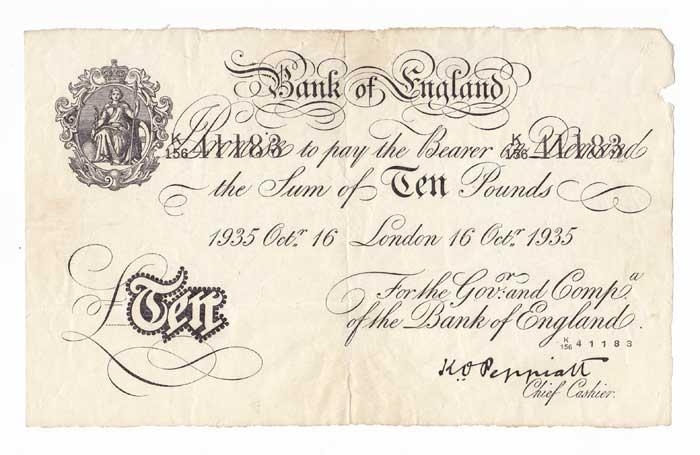 Bank of England
K
156 41183
K
156 41183
I Promise to pay the Bearer on Demand
the Sum of Ten Pounds
1935 Octr. 16 London 16 Octr. 1935
For the Govr. and Compa.
of the Bank of England.
£Ten
K
156 41183
K O Peppiatt
Chief Cashier.